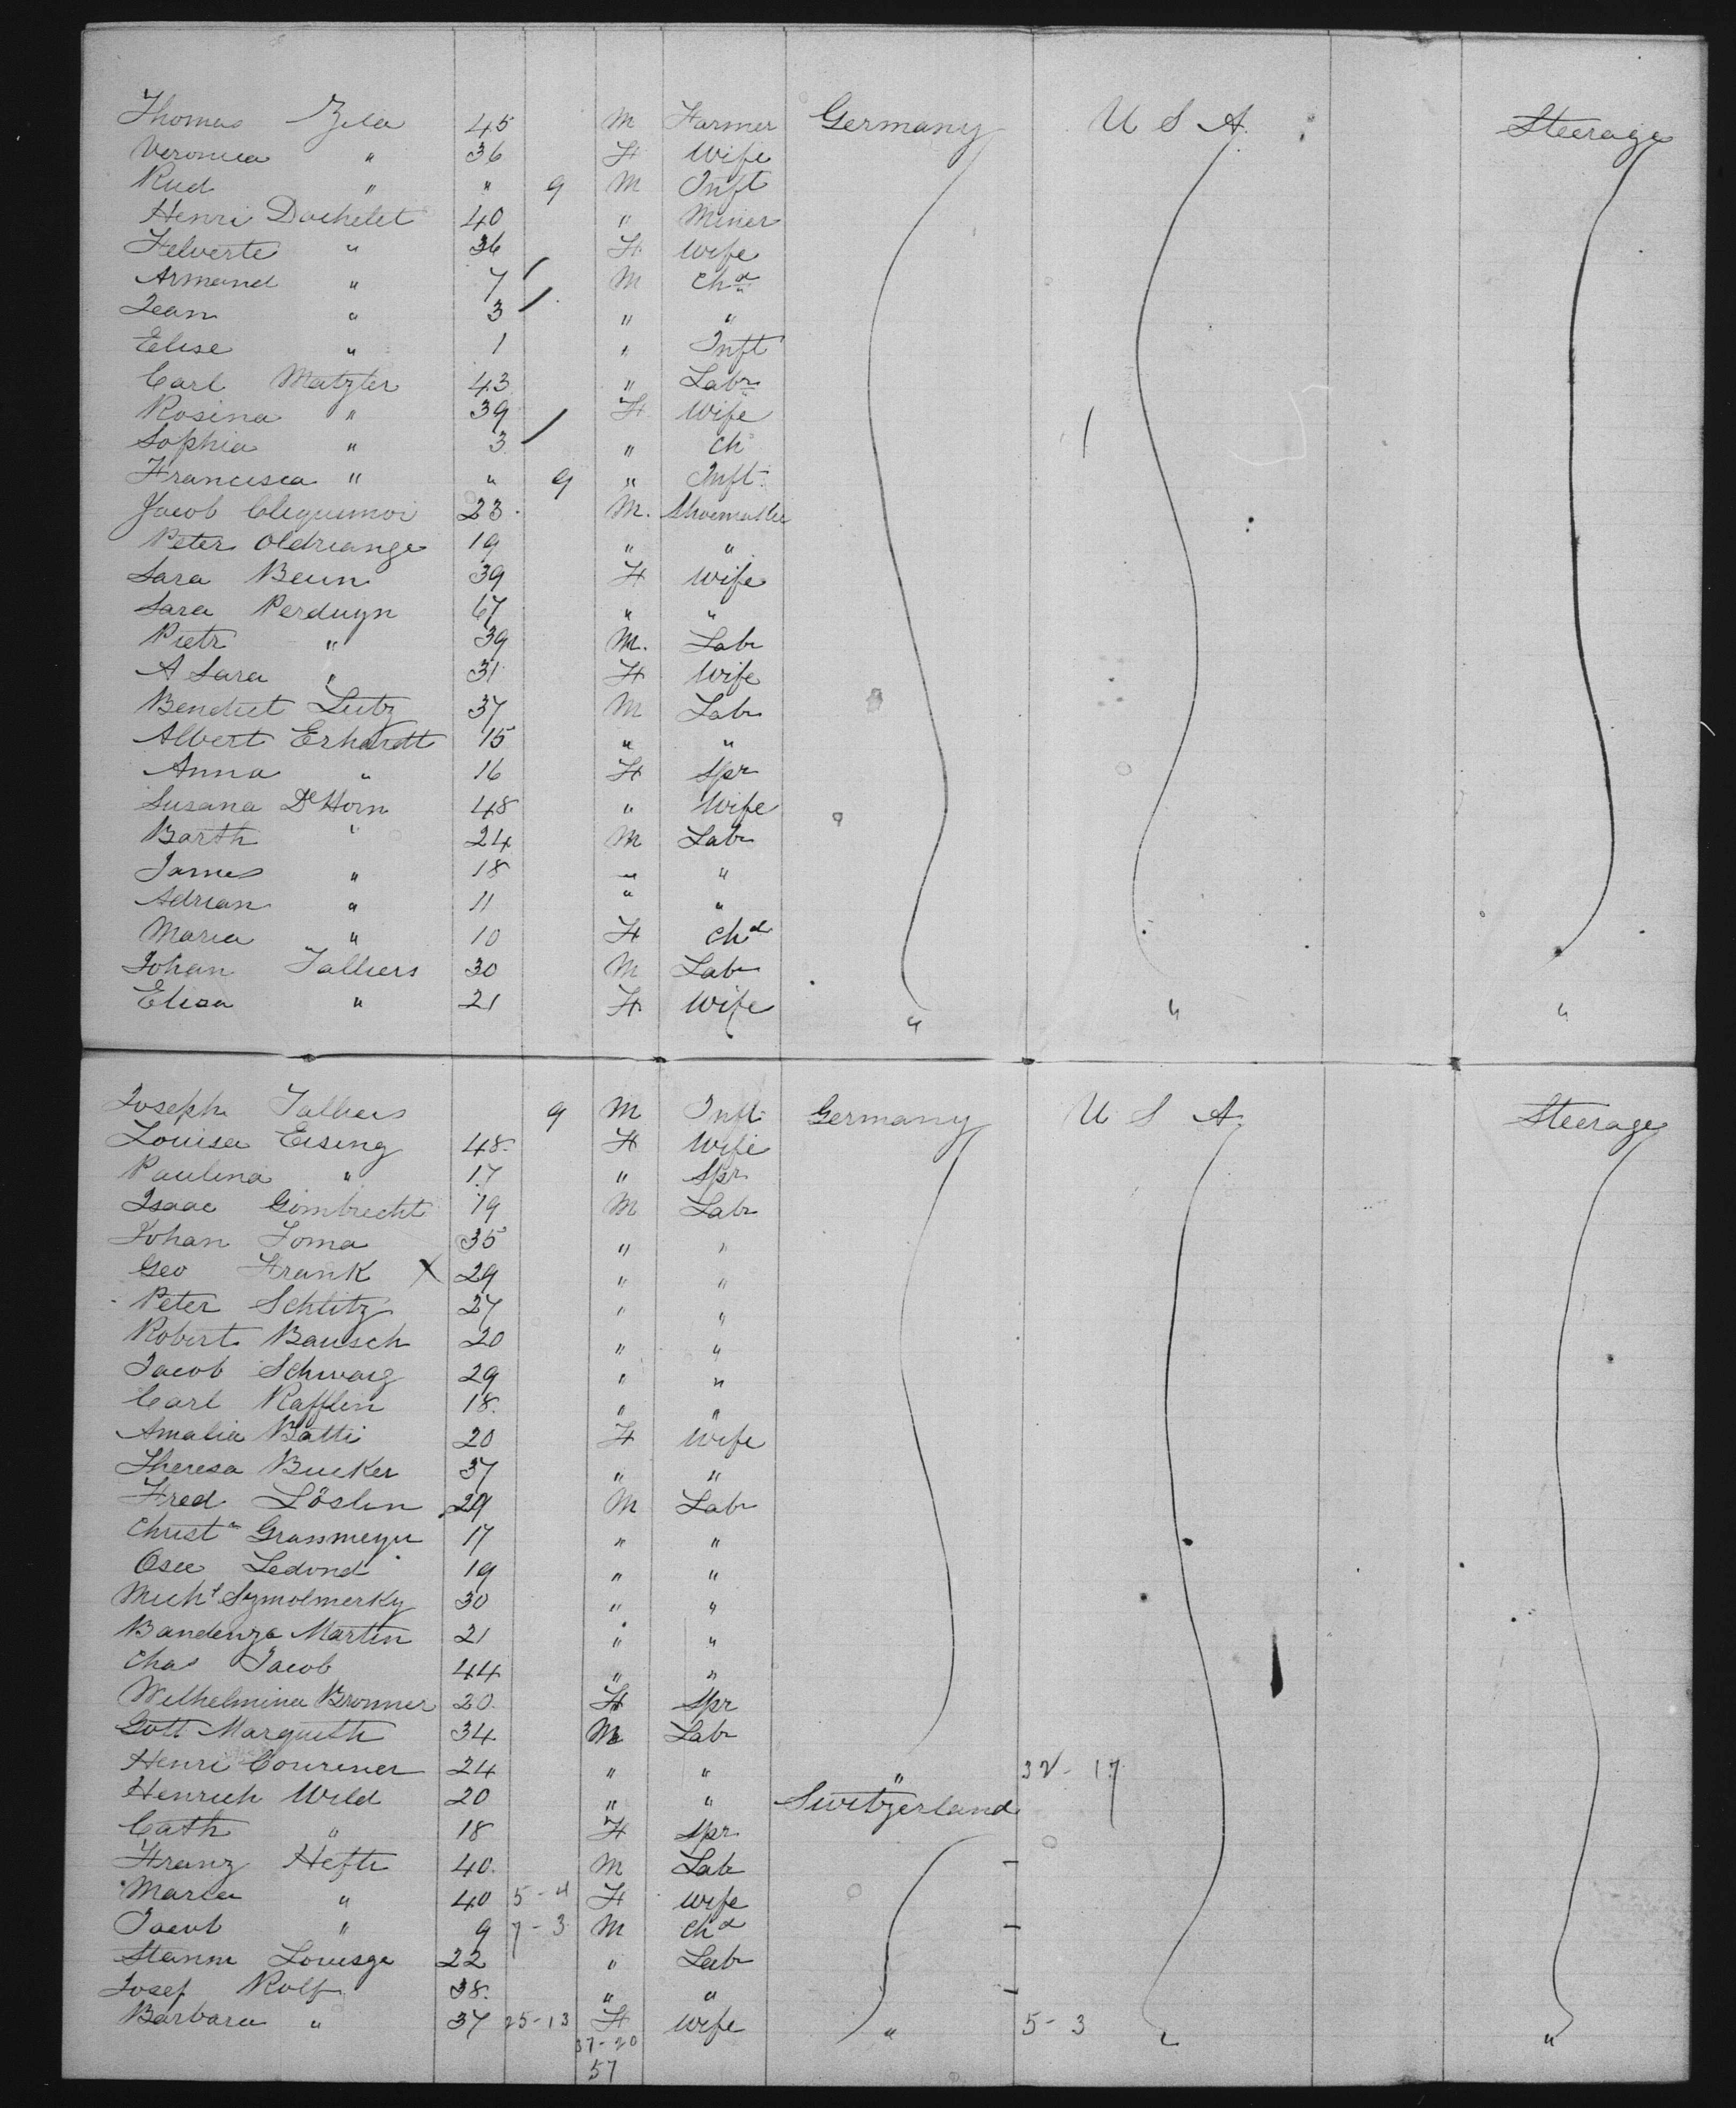 Thomas Zela 45 M Farmer Germany U S A Steerage
Veronica " 36 F Wife
Rud " " 9 M Inft
Henri Dachelet 40 " Miner
Felverte " 36 F Wife
Armand " 7 M Chd
Jean " 3 " "
Elise " 1 " Inft
Carl Matzler 43 " Labr
Rosina " 39 F Wife
Sophia " 3 " Ch
Francisca " " 9 " Inft
Jacob 23 M. Shoemaker
Peter Oldreange 19 " "
Sara Beun 39 F Wife
Sara Perduyn 67 " "
Pietr " 39 M. Labr
A Sara " 31 F Wife
Bendict Lutz 37 M Labr
Albert Erhardt 15 " "
Anna " 16 F Spr
Susana De Horn 48 " Wife
Barth " 24 M Labr
James " 18 " "
Adrian " 11 " "
Maria " 10 F Chd
Johan Talliers 30 M Labr
Elisa " 21 F Wife " " "
Joseph Talliers 9 M Inft Germany U S A Steerage
Louisa Eising 48 F Wife
Paulina " 17 " Spr
Isaac Gimbrecht 19 M Labr
Johan Toma 35 " "
Geo Frank X 29 " "
Peter Schlitz 27 " "
Robert Bausch 20 " "
Jacob Schwarz 29 " "
Carl Rafflin 18 " "
Amalia Batti 20 F Wife
Theresa Bucker 37 " "
Fred Löslin 29 M Labr
Christn Grassmeyer 17 " "
Osee Ledond 19 " "
Michl Szmolmerky 30 " "
Bandenza Martin 21 " "
Chas Jacob 44 " "
Wilhelmina Bronner 20 F Spr
Gott Marguetti 34 M Labr
Henri Courener 24 " " " 32 - 17
Henrich Wild 20 " " Switzerland
Cath " 18 F Spr
Franz Hefti 40 M Labr
Maria " 40 5 - 4 F Wife
Jacob " 9 7 - 3 M Chd
Stanm Louisge 22 " Labr
Josef Rolf 38 " "
Barbara " 37 25-13 F Wife " 5 - 3 " "
37-20
57